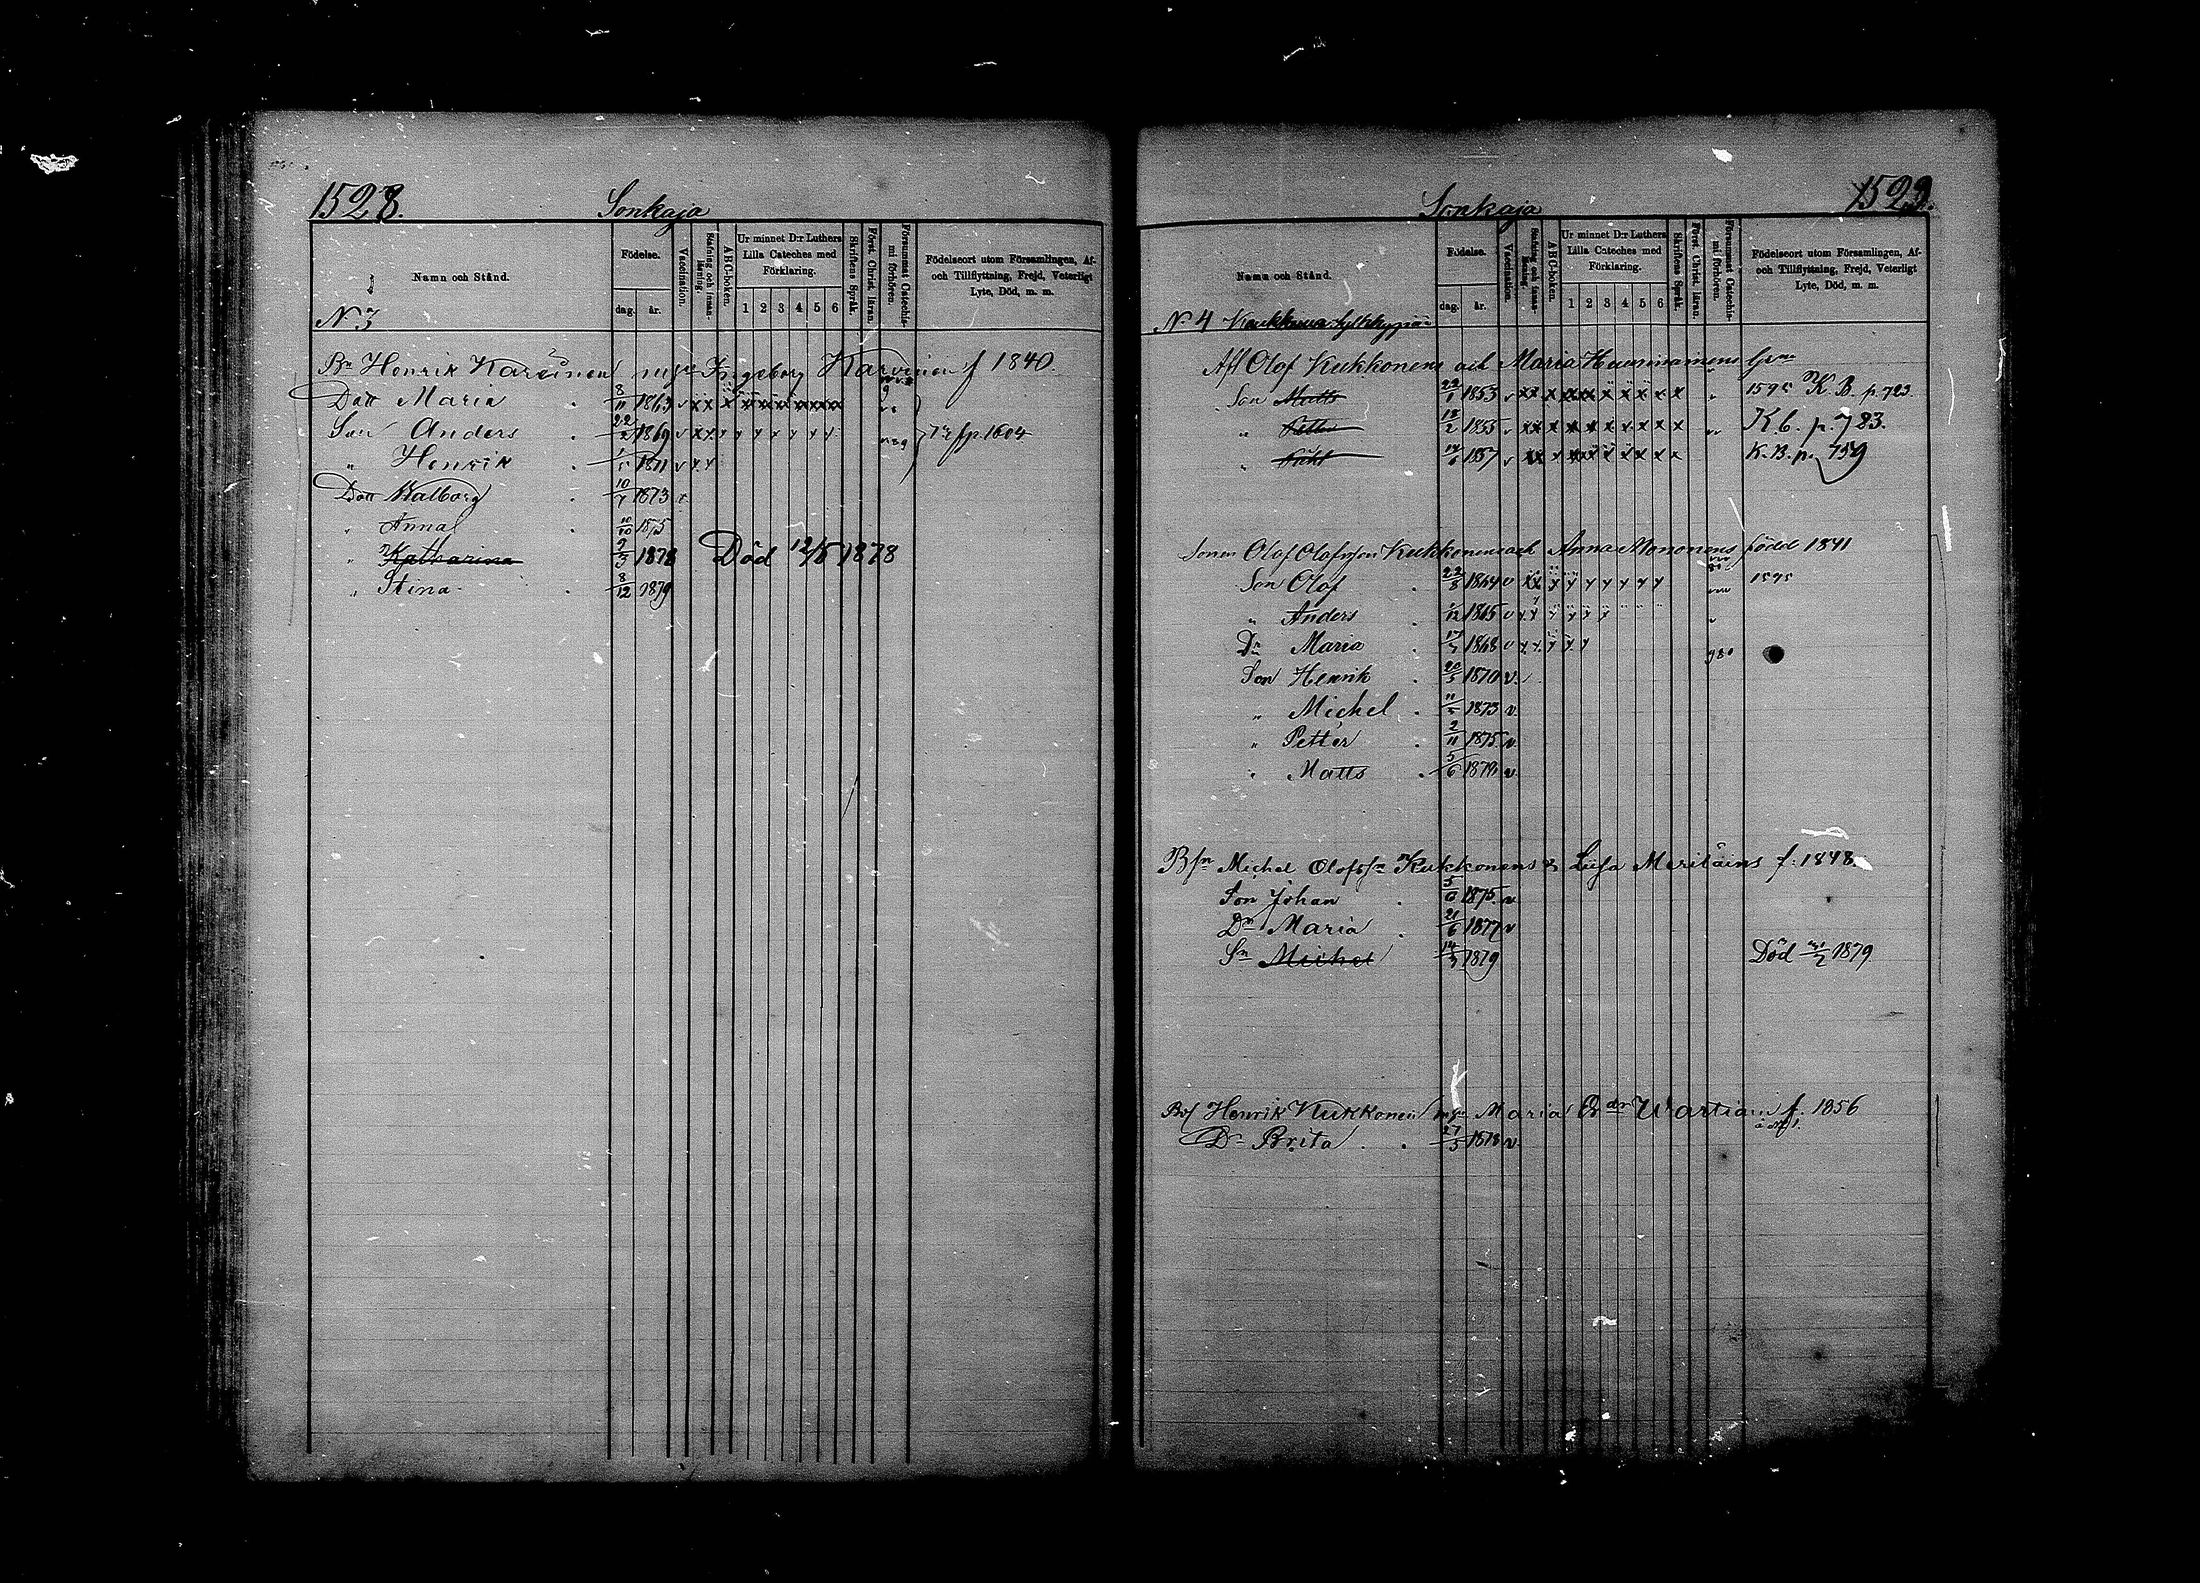 1528.
Sonkaja
Namn och Stånd.
Födelse.
dag. år.
Vaccination.
Stafning och innanläsning.
ABC-boken.
Ur minnet D:r Luthers Lilla Cateches med Förklaring.
1 2 3 4 5 6
Skriftens Språk.
Först. Christ. läran.
Försummat Catechismi förhören.
Födelseort utom Församlingen, Af- och Tillflyttning, Frejd, Veterligt Lyte, Död, m. m.
N. 3
Bn Henrik Karvinen Ingeborg Karvinen f 1840.
Dott Maria 8/11 1863
Son Anders 22/2 1869 p. 1604
" Henrik 1871
Dott Walborg 10/7 1873
" Anna 10/10 1875
" Katharina 1878 Död 12/5 1878
" Stina 8/12 1879
Sonkaja
1529.
Namn och Stånd.
Födelse.
dag. år.
Vaccination.
Stafning och innanläsning.
ABC-boken.
Ur minnet D:r Luthers Lilla Cateches med Förklaring.
1 2 3 4 5 6
Skriftens Språk.
Först. Christ. läran.
Försummat Catechismi förhören.
Födelseort utom Församlingen, Af- och Tillflyttning, Frejd, Veterligt Lyte, Död, m. m.
N. 4
Afl Olof Kukkonens och Maria
Son Matts 22/1 1853 1595 K. B. p. 723.
" Petter 18/2 1855 K b. p. 783.
" 1857 K. B. p. 759
Sonen Olof Olofsson Kukkonens och Anna Mononens född 1841
Son Olof 22/8 1864 1595
" Anders 1/12 1865
Dr Maria 1868
Son Henrik 20/5 1870 v.
" Michel 11/5 1873 v
" Petter 2/11 1875 v
" Matts 5/6 1879 v
Bsn Michel Olofsn Kukkonens & Luisa Meriläins f. 1848.
Son Johan 1875 v
Dr Maria 21/6 1877 v
Sn Michel 1879 Död 1879.
Henrik Kukkonen Maria Wartiain f. 1856
Dr Brita 27/5 1878 v